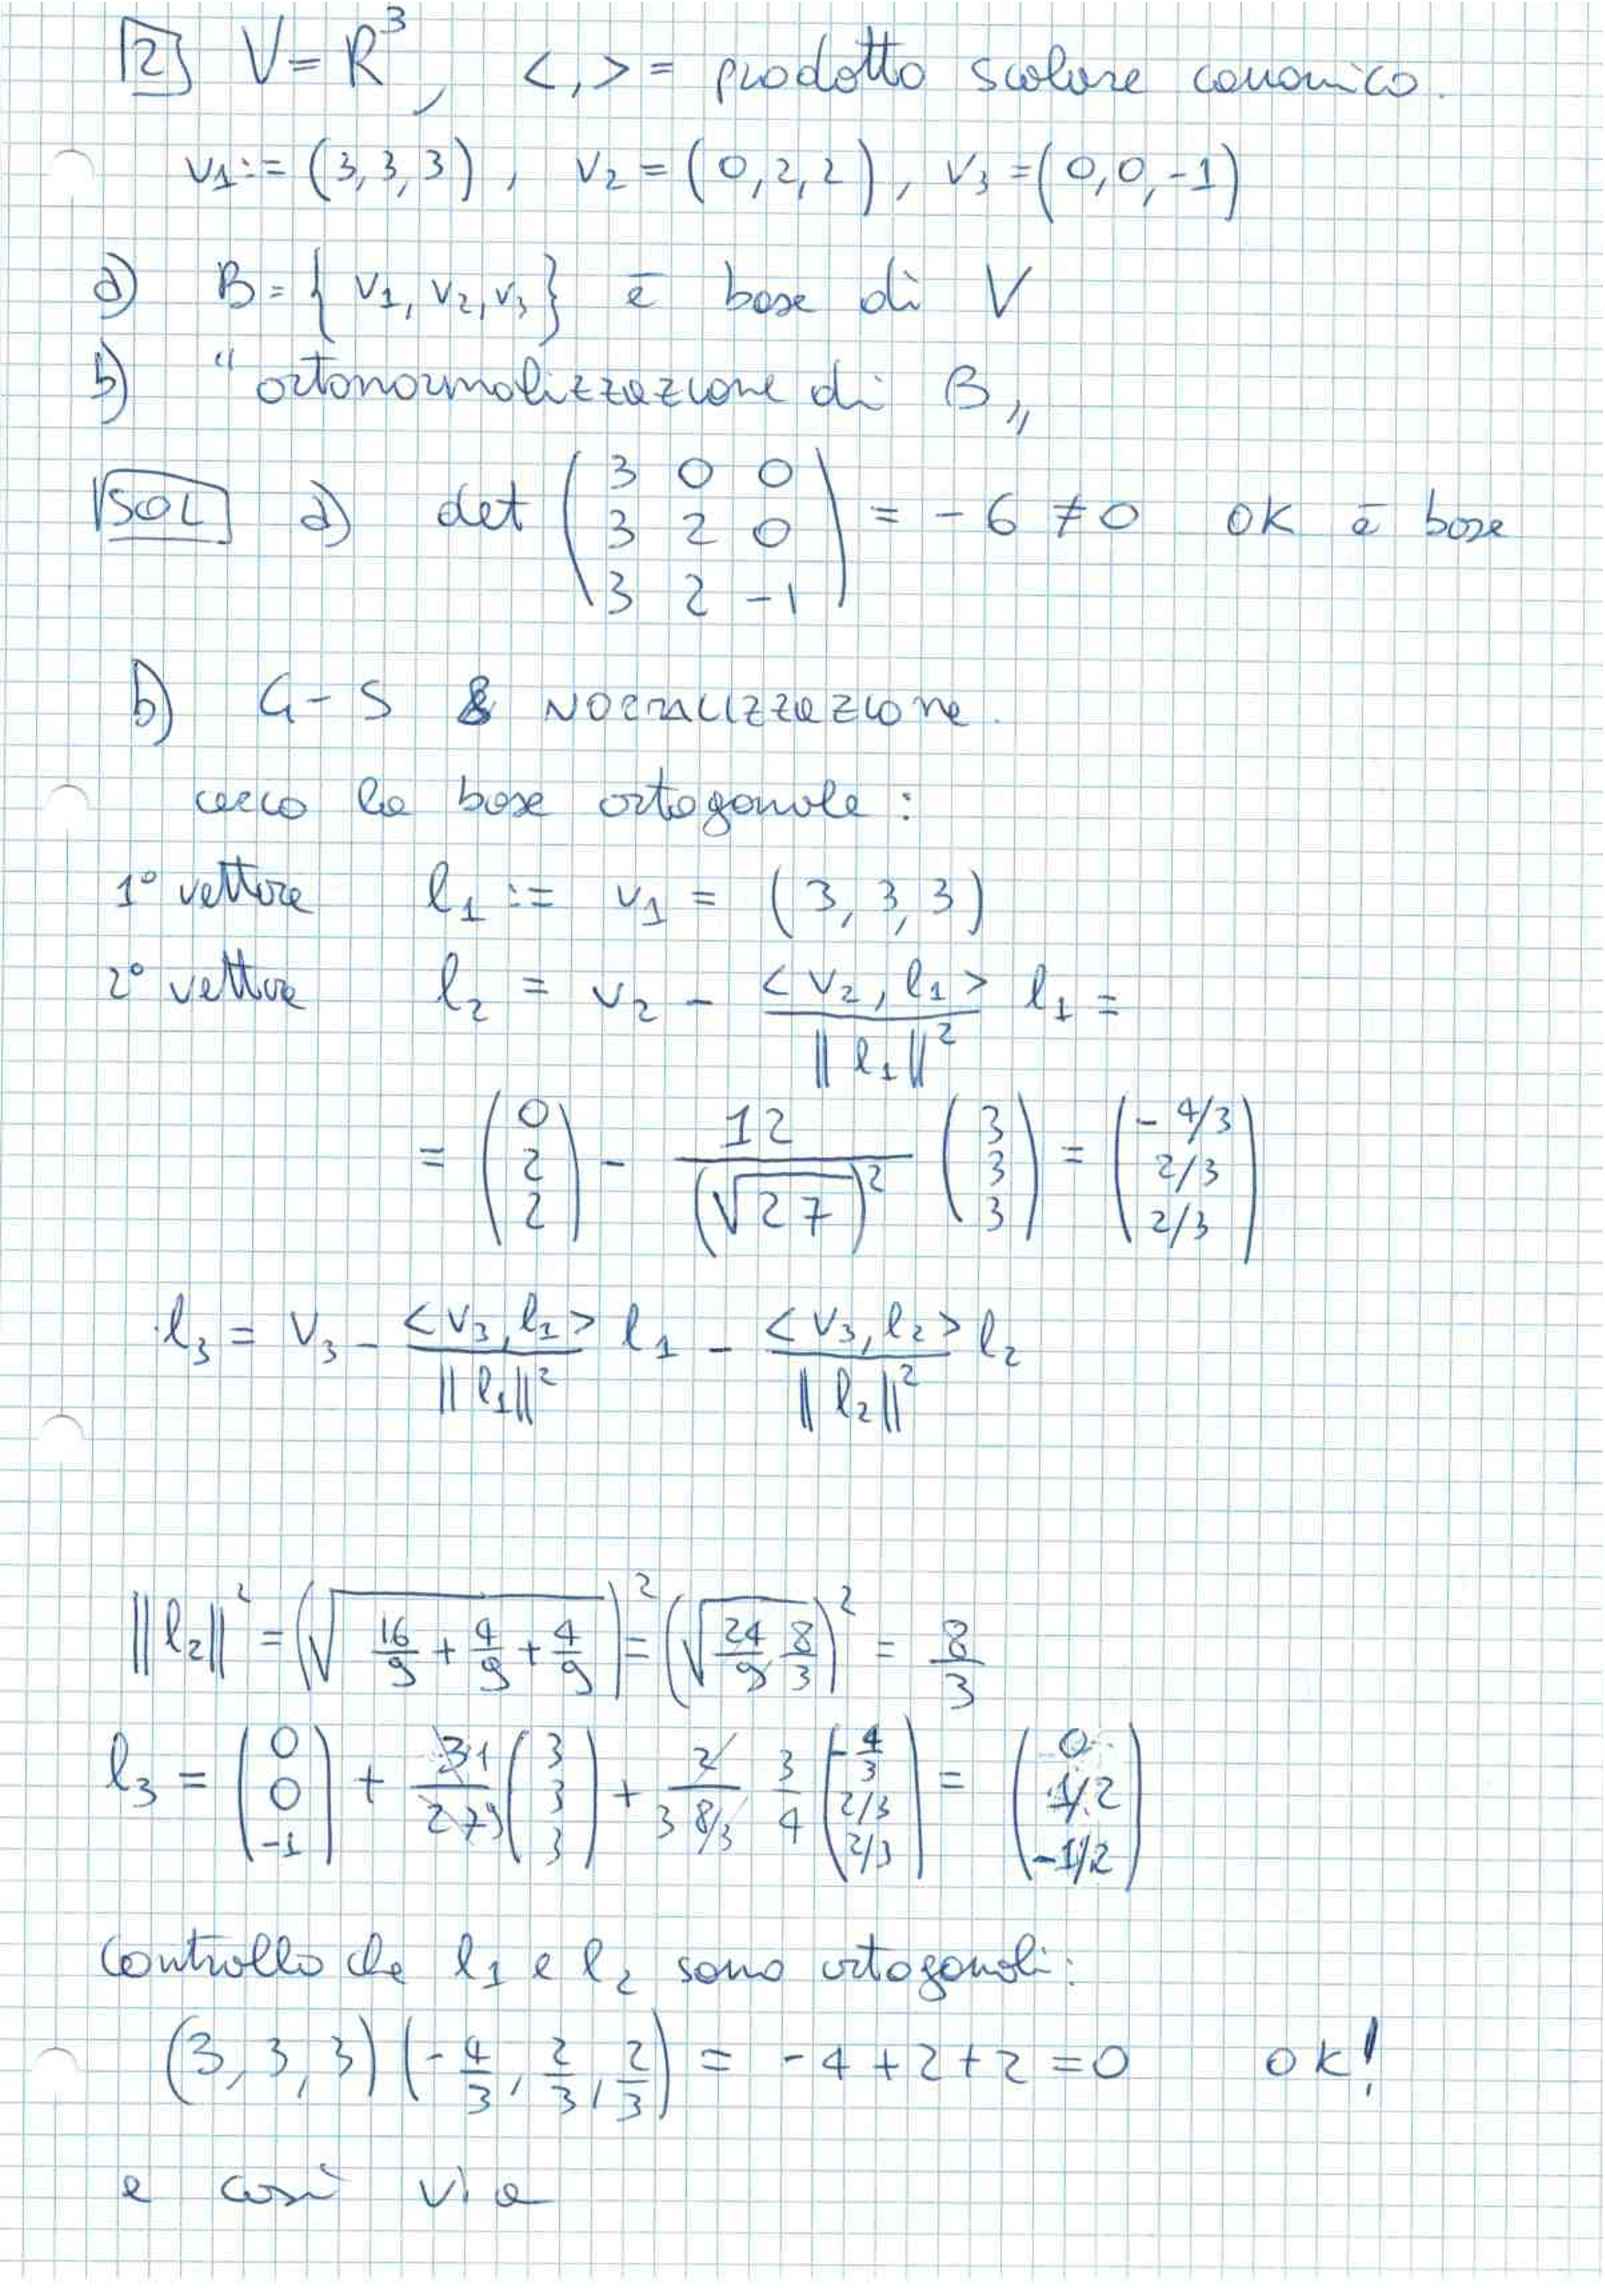 2] V = R³, < , > = prodotto scalare canonico.
v₁ := (3,3,3), v₂ = (0,2,2), v₃ = (0,0,-1)
a) B = { v₁, v₂, v₃ } è base di V
b) "ortonormalizzazione di B"
SOL a) det ( 3 0 0 ; 3 2 0 ; 3 2 -1 ) = -6 ≠ 0 OK è base
b) G-S & NORMALIZZAZIONE.
cerco la base ortogonale:
1° vettore l₁ := v₁ = (3,3,3)
2° vettore l₂ = v₂ - <v₂, l₁> / ||l₁||² l₁ =
= (0 ; 2 ; 2) - 12 / (√27)² (3 ; 3 ; 3) = (-4/3 ; 2/3 ; 2/3)
l₃ = v₃ - <v₃, l₁> / ||l₁||² l₁ - <v₃, l₂> / ||l₂||² l₂
||l₂||² = (√(16/9 + 4/9 + 4/9))² = (√(24/9 8/3))² = 8/3
l₃ = (0 ; 0 ; -1) + 3 1 / 27 9 (3 ; 3 ; 3) + 2 / 3 8/3 3/4 (-4/3 ; 2/3 ; 2/3) = (0 ; 1/2 ; -1/2)
Controllo che l₁ e l₂ sono ortogonali:
(3, 3, 3) (-4/3, 2/3, 2/3) = -4 + 2 + 2 = 0 OK!
e così via